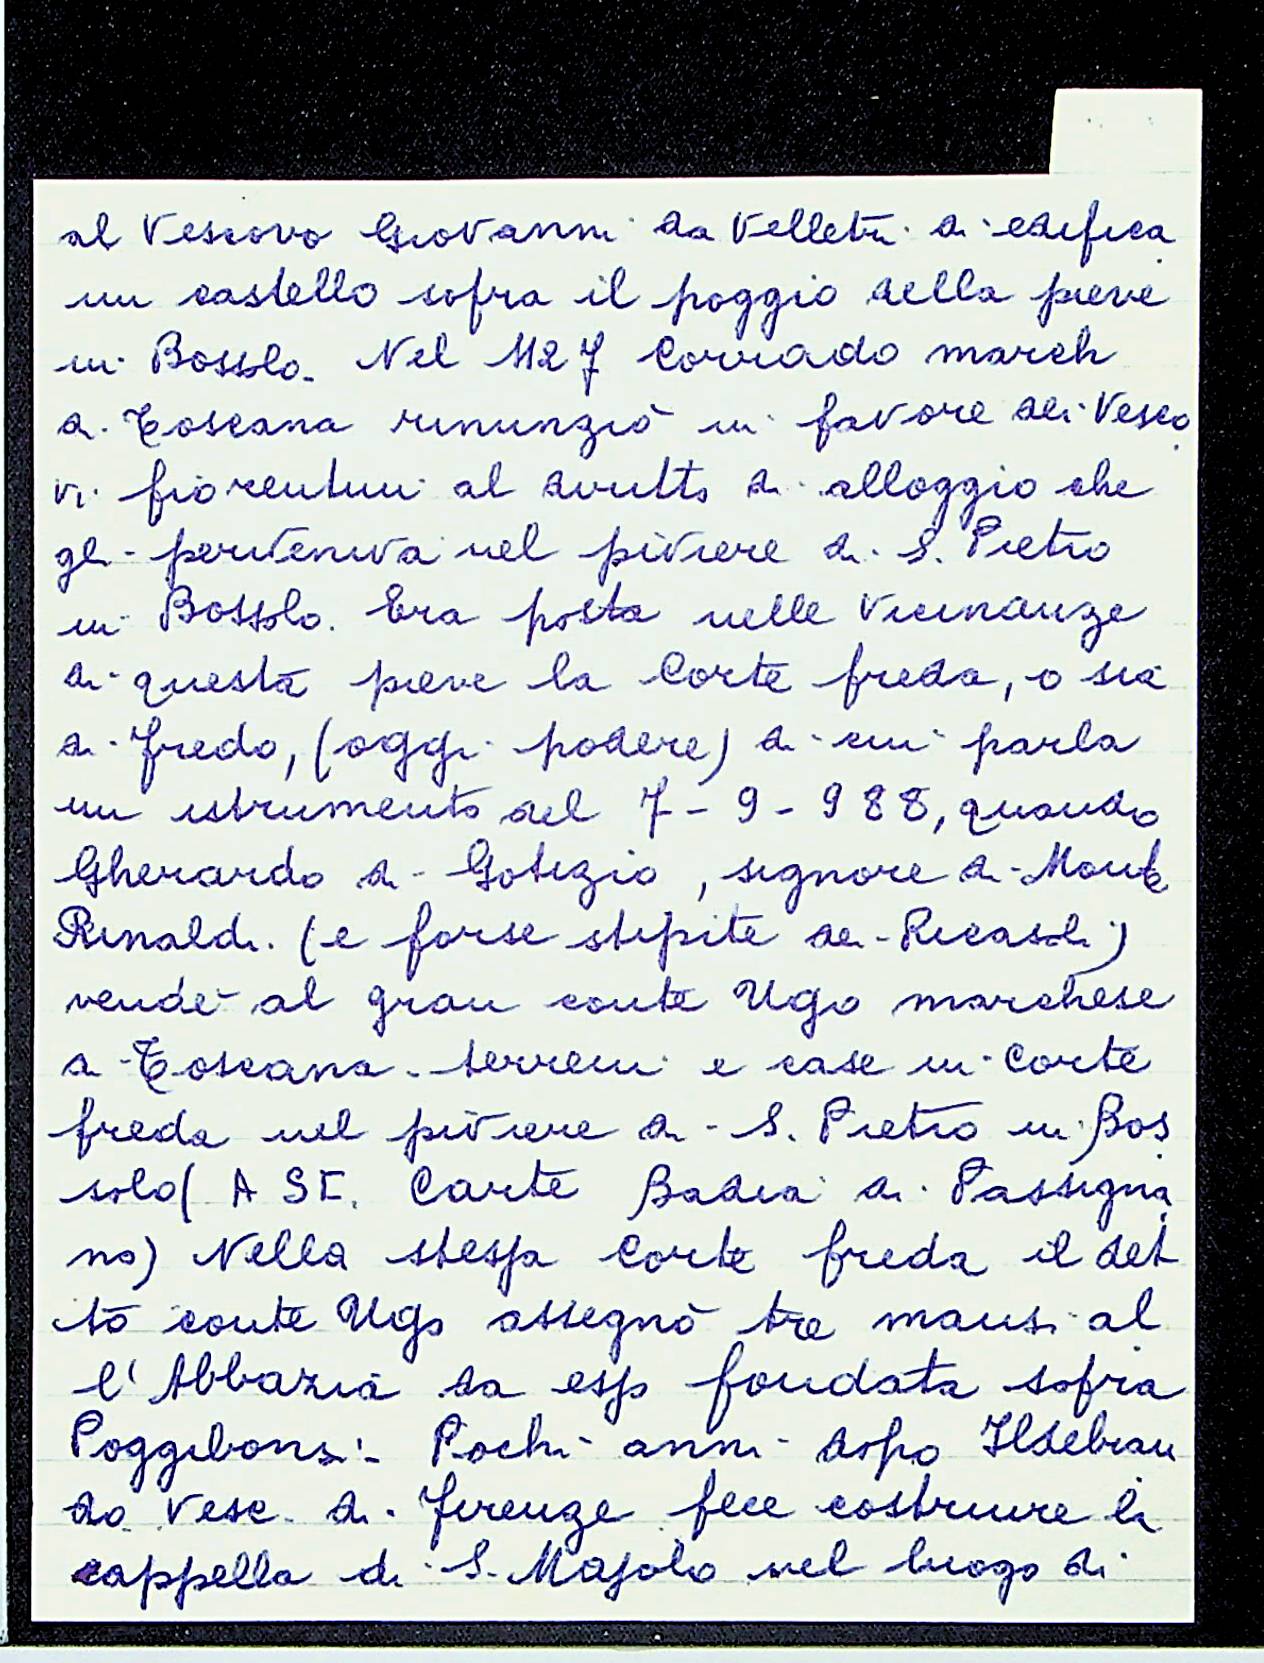 al Vescovo Giovanni da Velletri di edifica
un castello sopra il poggio della pieve
in Bossolo. Nel 1127 Corrado march
di Toscana rinunziò in favore dei Vesco
vi fiorentini al diritto di alloggio che
gli perveniva nel piviere di S. Pietro
in Bossolo. Era posta nelle vicinanze
di questa pieve la Corte freda, o sia
di Fredo, (oggi podere) di cui parla
un istrumento del 7-9-988, quando
Gherardo di Gotizio, signore di Monte
Rinaldi (e forse stipite dei Ricasoli)
vendè al gran conte Ugo marchese
di Toscana terreni e case in Corte
freda nel piviere di S. Pietro in Bos
solo (A SF. Carte Badia di Passigna
no) Nella stessa Corte freda il det
to conte Ugo assegnò tre mansi al
l'Abbazia da esso fondata sopra
Poggibonsi. Pochi anni dopo Ildebran
do Vesc. di Firenze fece costruire la
cappella di S. Majolo nel luogo di